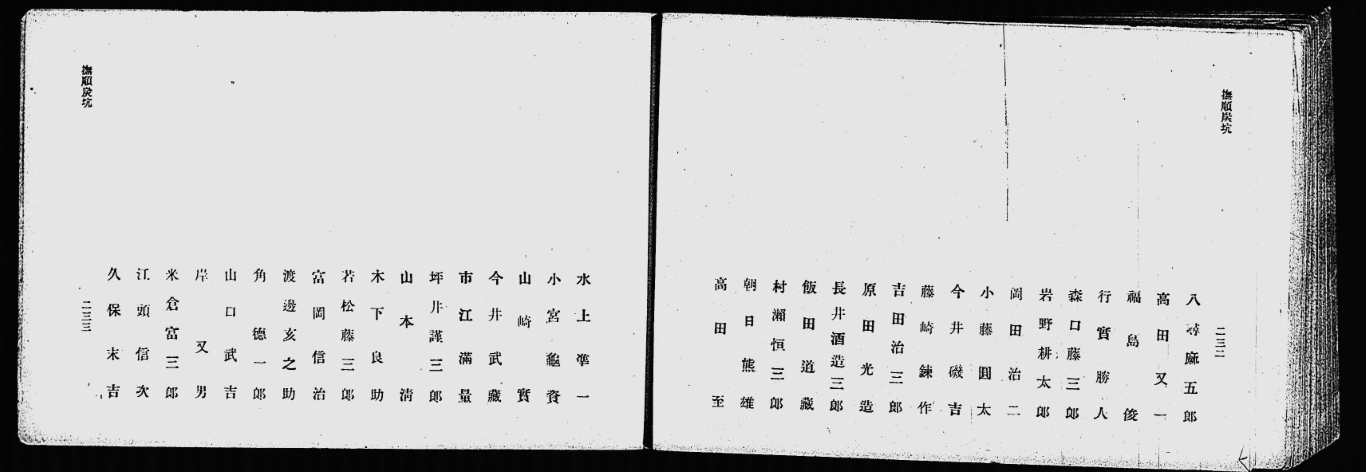 撫順炭坑
八尋麻五郎
高田又一
福島俊
行實勝人
森口藤三郎
岩野耕太郎
岡田治二
小藤圓太
今井磯吉
藤崎錬作
吉田治三郎
原田光造
長井酒造三郎
飯田道藏
村瀬恒三郎
朝日熊雄
高田至
二三二
水上準一
小宮龜資
山崎實
今井武藏
市江滿量
坪井謹三郎
山本清
木下良助
若松藤三郎
富岡信治
渡邊亥之助
角德一郎
山口武吉
岸又男
米倉富三郎
江頭信次
久保末吉
撫順炭坑
二三三